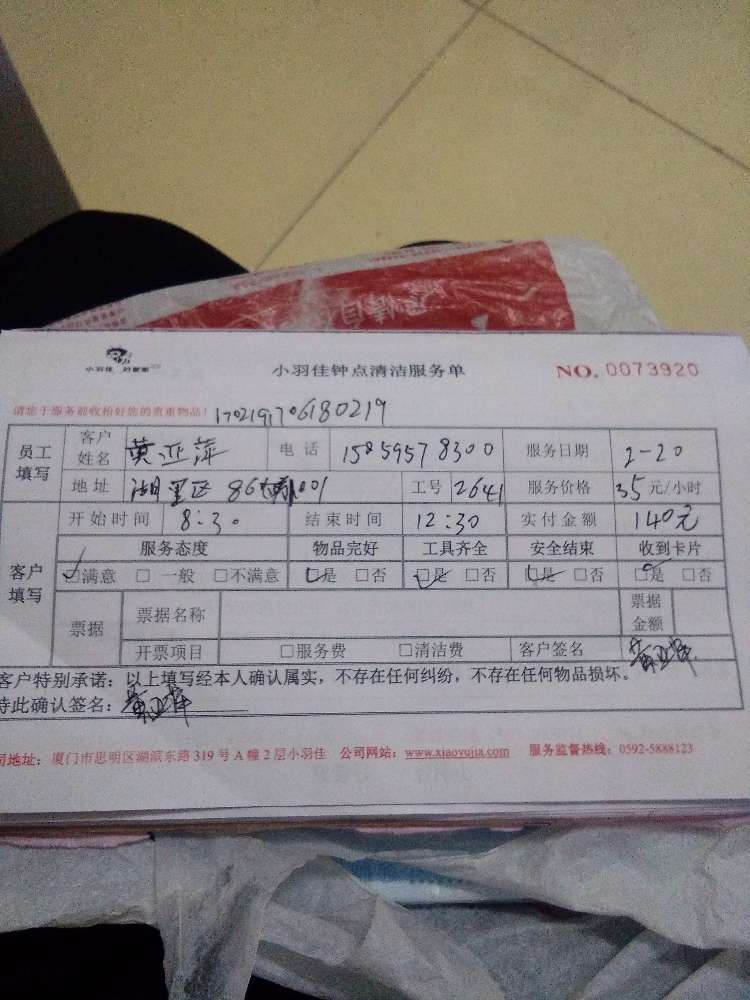 小羽佳 好管家
小羽佳钟点清洁服务单
NO. 0073920
请您于服务前收拾好您的贵重物品! 1702191706180219
员工填写 客户姓名 黄亚萍 电话 15859578300 服务日期 2-20
地址 湖里区 86 1001 工号 2641 服务价格 35 元/小时
客户填写 开始时间 8:30 结束时间 12:30 实付金额 140元
服务态度 物品完好 工具齐全 安全结束 收到卡片
☑满意 □一般 □不满意 ☑是 □否 ☑是 □否 ☑是 □否 ☑是 □否
票据 票据名称 票据金额
开票项目 □服务费 □清洁费 客户签名 黄亚萍
客户特别承诺：以上填写经本人确认属实，不存在任何纠纷，不存在任何物品损坏。
特此确认签名：黄亚萍
司地址：厦门市思明区湖滨东路 319 号 A 幢 2 层小羽佳 公司网站：www.xiaoyujia.com 服务监督热线：0592-5888123